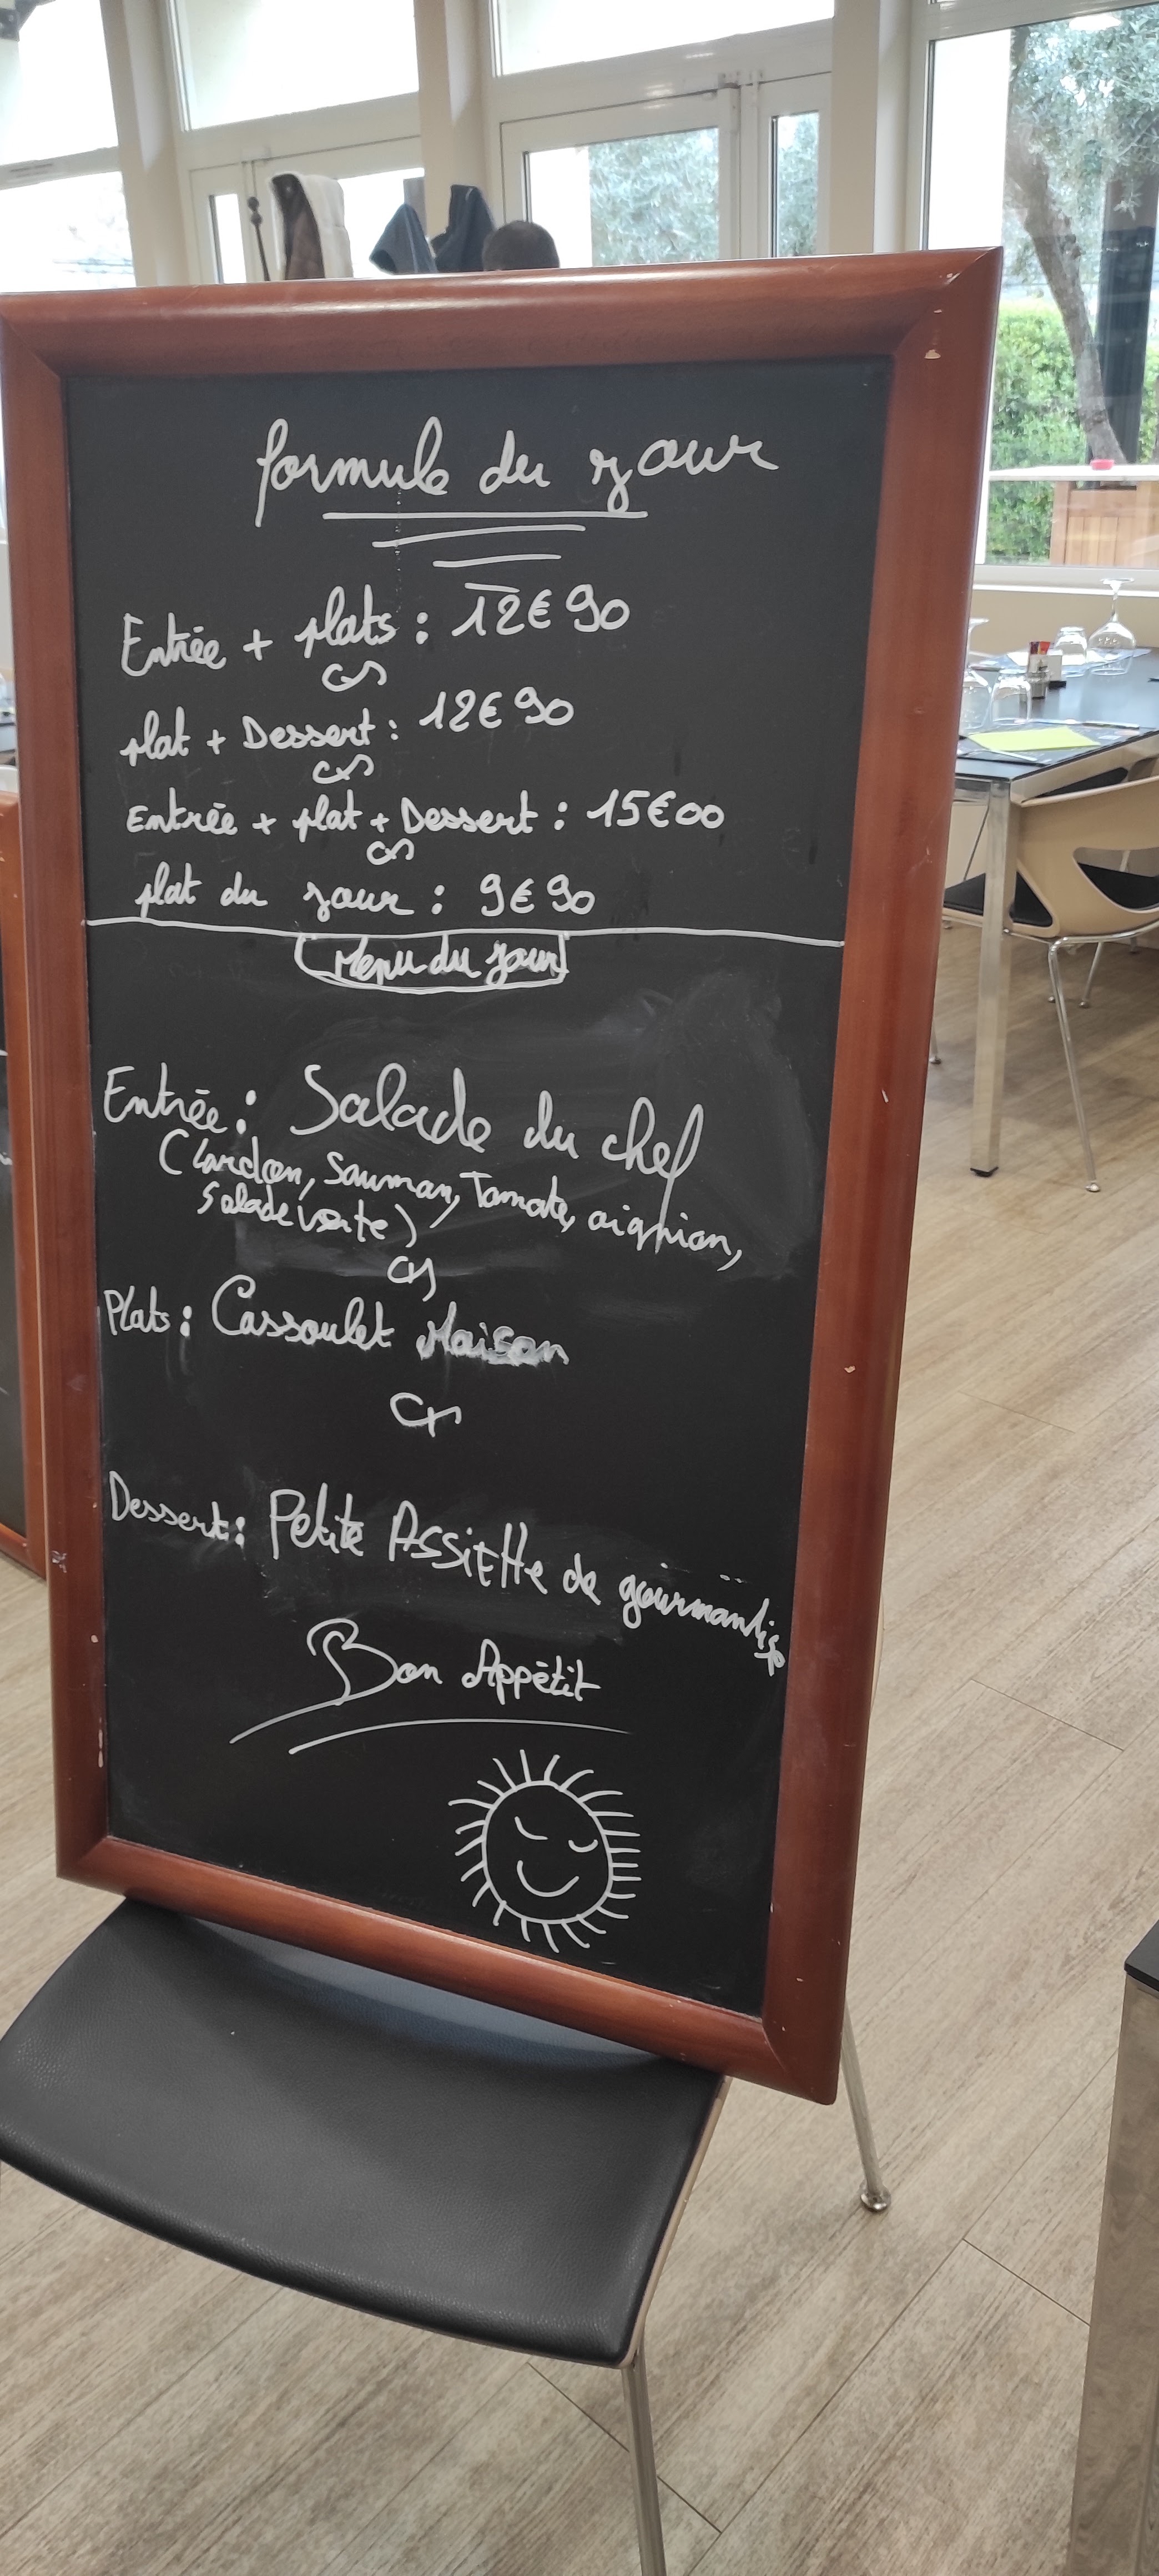 formule du jour
Entrée + plats : 12€90
plat + Dessert : 12€90
Entrée + plat + Dessert : 15€00
plat du jour : 9€90
Menu du jour
Entrée : Salade du chef
(Lardon, Saumon, Tomate, oignion,
Salade verte)
Plats : Cassoulet Maison
Dessert : Petite Assiette de gourmandise
Bon Appétit